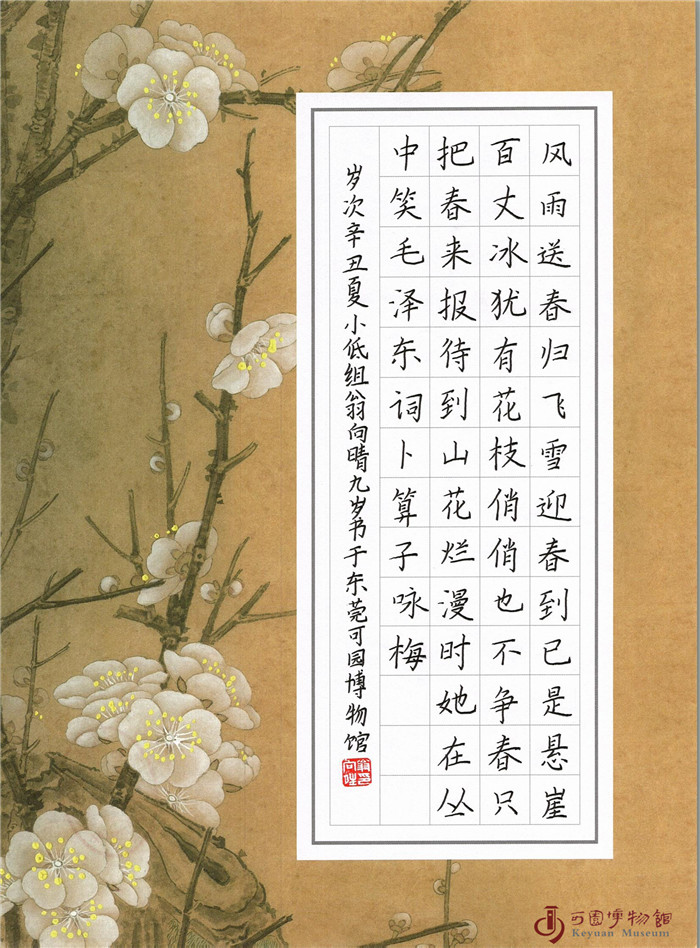 风雨送春归飞雪迎春到已是悬崖
百丈冰犹有花枝俏俏也不争春只
把春来报待到山花烂漫时她在丛
中笑毛泽东词卜算子咏梅
岁次辛丑夏小低组翁向晴九岁书于东莞可园博物馆
翁向晴印
可园博物馆
Keyuan Museum